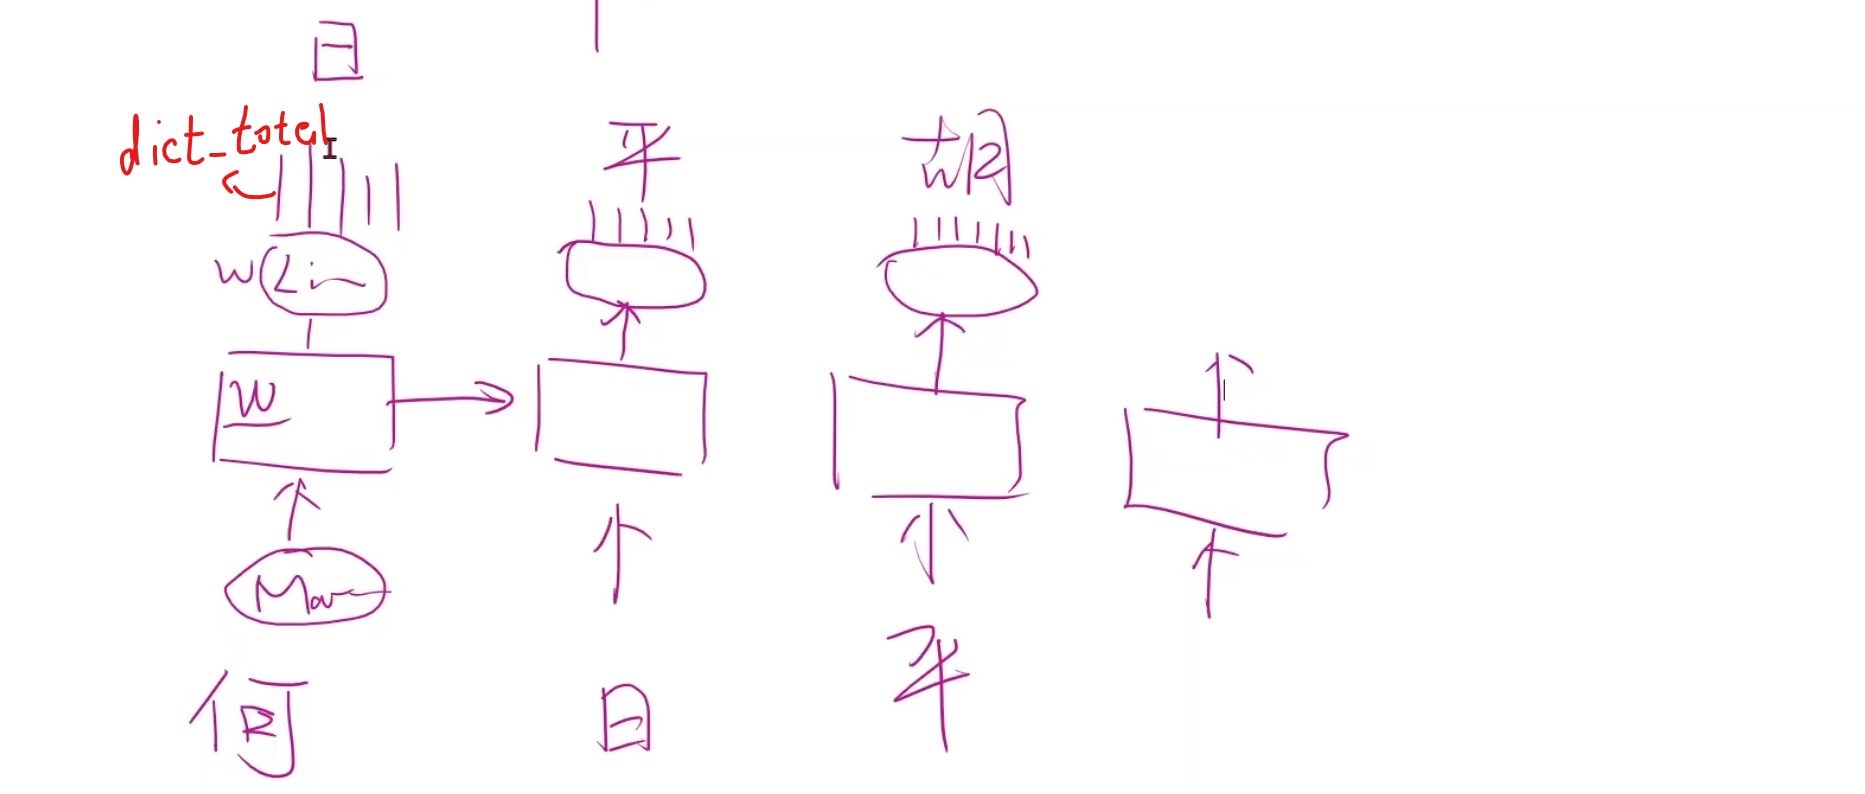 日
dict_total
平
胡
W Lin
W
何
日
平